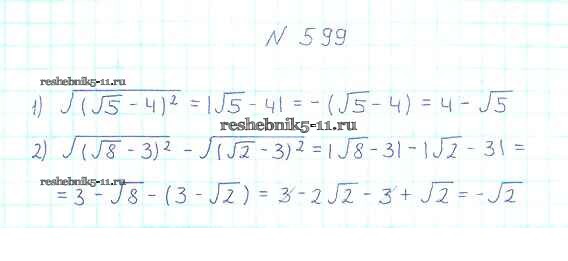 N 599
reshebnik5-11.ru
1) √(√5 - 4)² = |√5 - 4| = -(√5 - 4) = 4 - √5
reshebnik5-11.ru
2) √(√8 - 3)² - √(√2 - 3)² = |√8 - 3| - |√2 - 3| =
reshebnik5-11.ru
= 3 - √8 - (3 - √2) = 3 - 2√2 - 3 + √2 = -√2